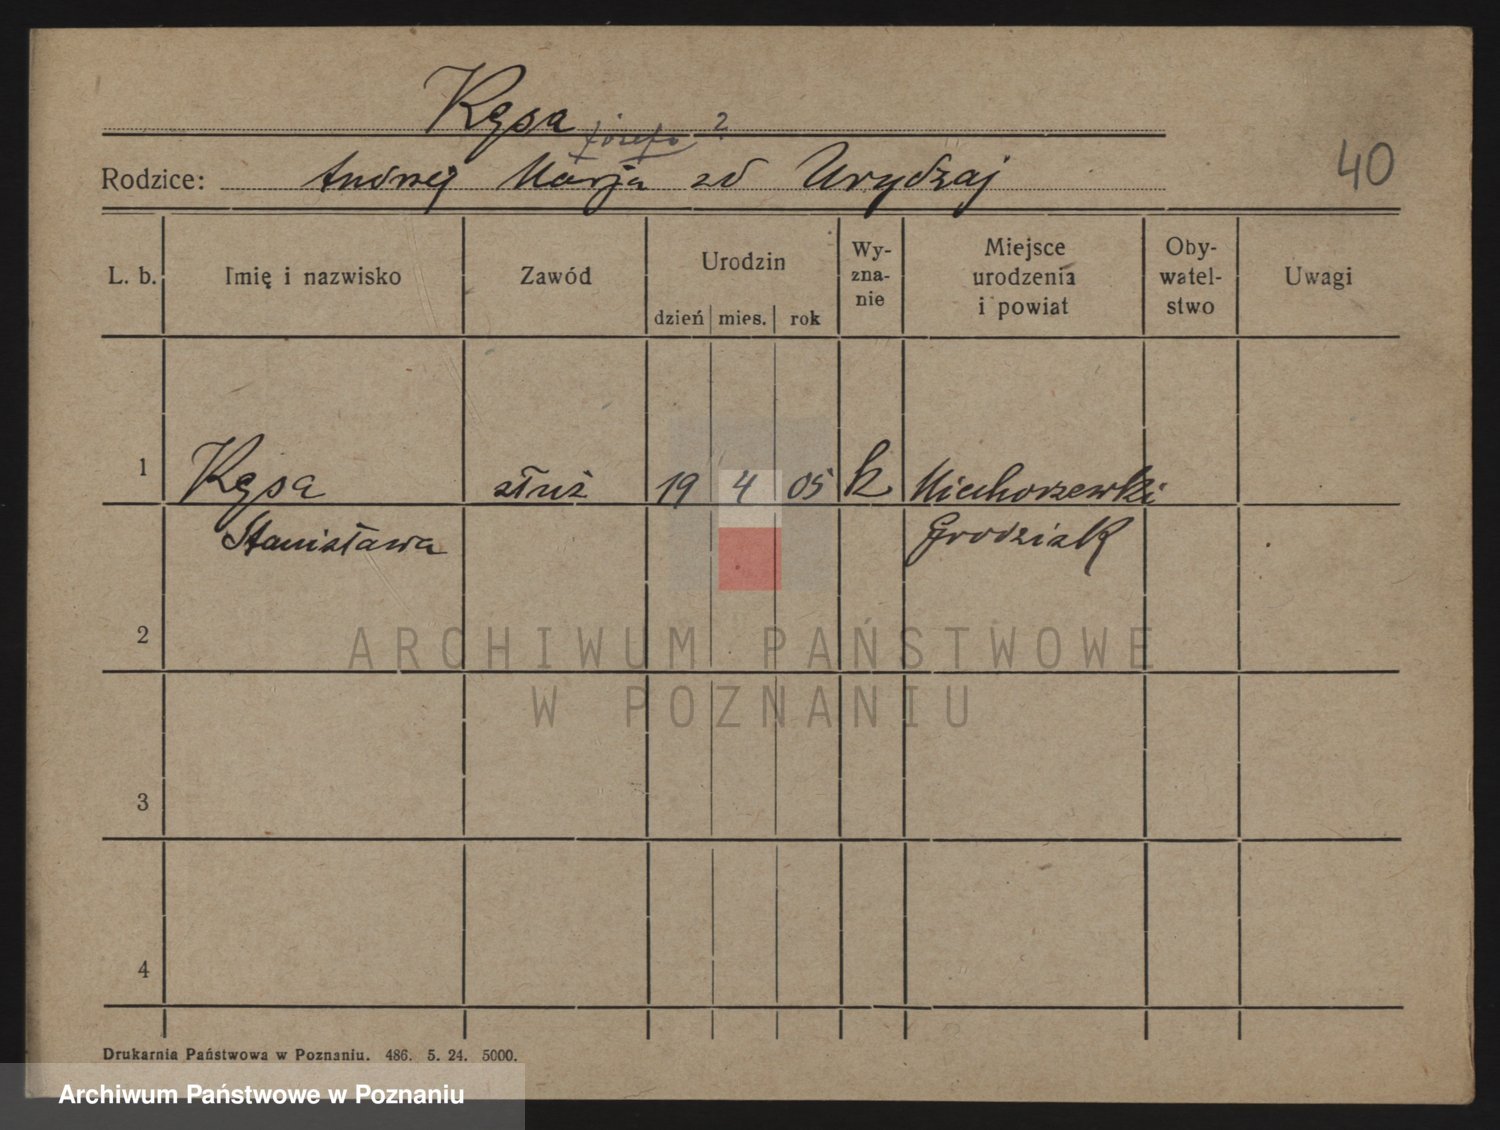 Kęsa
Józefa ?
Rodzice: Andrzej Marja zd Urydzaj
40
L. b. Imię i nazwisko Zawód Urodzin Wy-zna-nie Miejsce urodzenia i powiat Oby-watel-stwo Uwagi
dzień mies. rok
1 Kęsa służ 19 4 05 k Niechorzewki
Stanisława Grodzisk
2
ARCHIWUM PAŃSTWOWE
W POZNANIU
3
4
Drukarnia Państwowa w Poznaniu. 486. 5. 24. 5000.
Archiwum Państwowe w Poznaniu